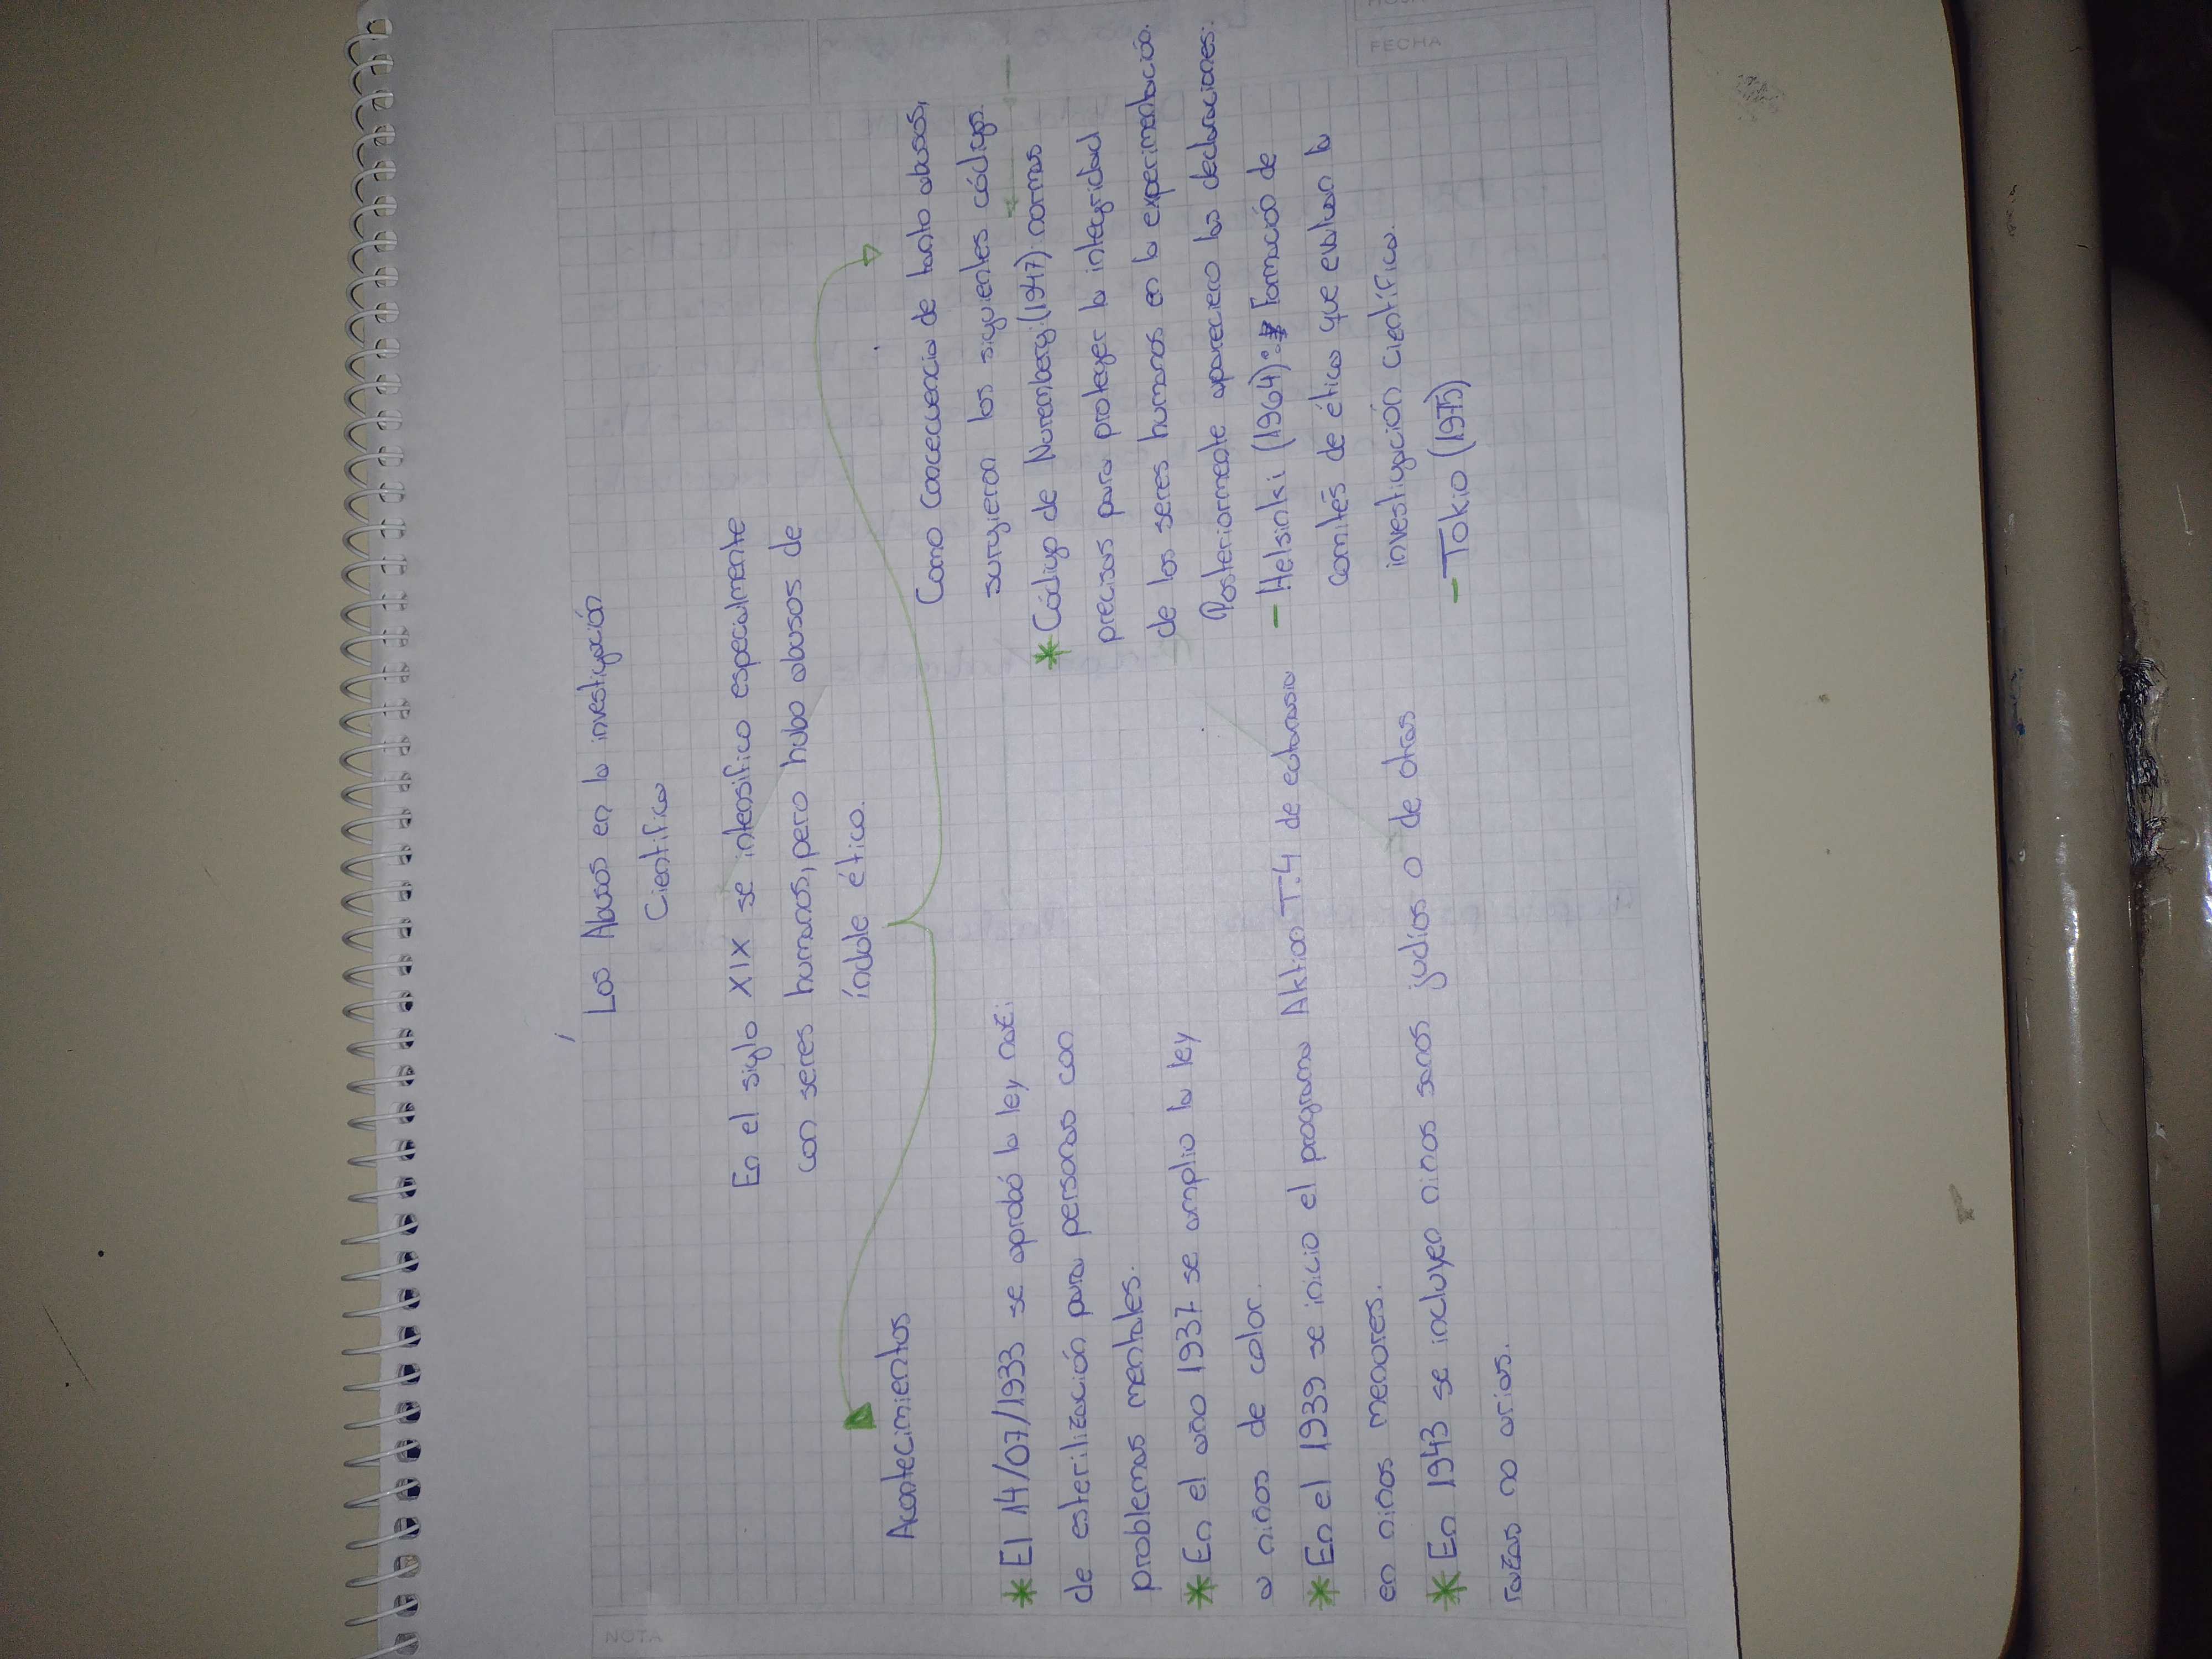 HOJA
FECHA
Los Abusos en la investigación
Cientifica
En el siglo XIX se intensifico especialmente
con seres humanos, pero hubo abusos de
índole ético.
Acontecimientos
* El 14/07/1933 se aprobó la ley nazi
de esterilización para personas con
problemas mentales.
* En el año 1937 se amplio la ley
a niños de color.
* En el 1939 se inicio el programa Aktion T.4 de eutanasia
en niños menores.
* En 1943 se incluyen niños sanos judíos o de otras
razas no arias.
Como Concecuencia de tanto abusos,
surgieron los siguientes códigos.
* Código de Nuremberg:(1947): normas
precisas para proteger la integridad
de los seres humanos en la experimentación.
Posteriormente apareciero las declaraciones:
- Helsinki (1964): Formación de
comités de ética que evaluan la
investigación Científica.
- Tokio (1975)
NOTA